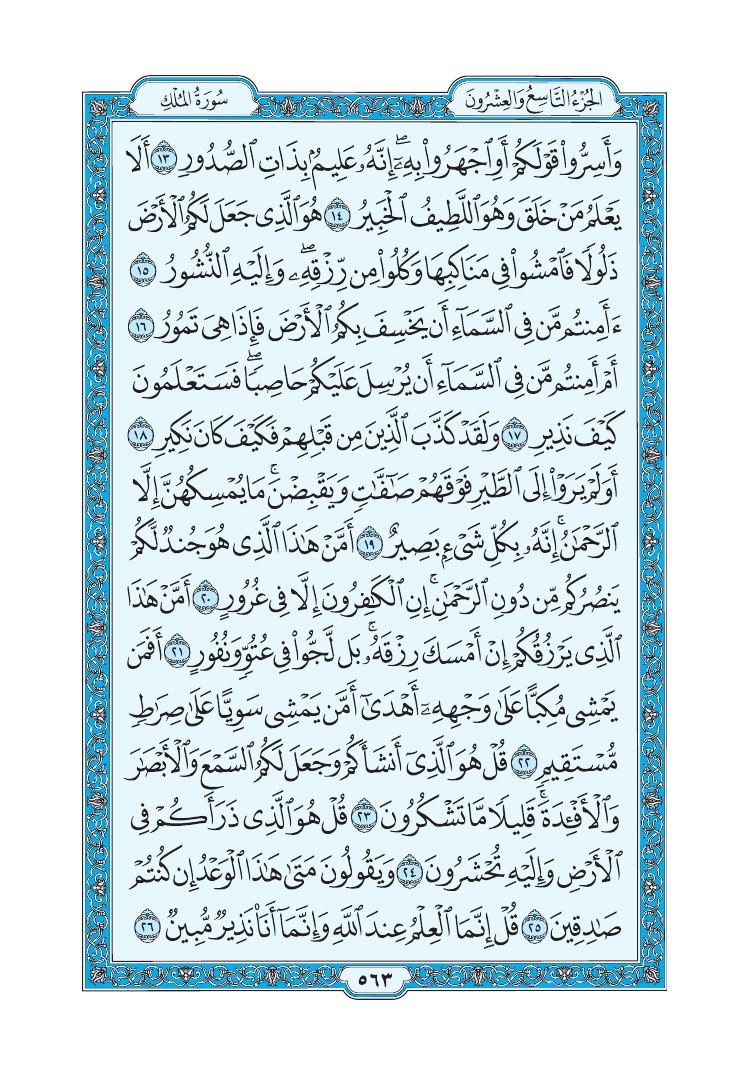 الجُزْءُ التَّاسِعُ وَالعِشْرُونَ
سُورَةُ المُلْكِ
وَأَسِرُّواْ قَوْلَكُمْ أَوِ ٱجْهَرُواْ بِهِۦٓۖ إِنَّهُۥ عَلِيمُۢ بِذَاتِ ٱلصُّدُورِ ١٣ أَلَا
يَعْلَمُ مَنْ خَلَقَ وَهُوَ ٱللَّطِيفُ ٱلْخَبِيرُ ١٤ هُوَ ٱلَّذِى جَعَلَ لَكُمُ ٱلْأَرْضَ
ذَلُولًا فَٱمْشُواْ فِى مَنَاكِبِهَا وَكُلُواْ مِن رِّزْقِهِۦۖ وَإِلَيْهِ ٱلنُّشُورُ ١٥
ءَأَمِنتُم مَّن فِى ٱلسَّمَآءِ أَن يَخْسِفَ بِكُمُ ٱلْأَرْضَ فَإِذَا هِىَ تَمُورُ ١٦
أَمْ أَمِنتُم مَّن فِى ٱلسَّمَآءِ أَن يُرْسِلَ عَلَيْكُمْ حَاصِبًاۖ فَسَتَعْلَمُونَ
كَيْفَ نَذِيرِ ١٧ وَلَقَدْ كَذَّبَ ٱلَّذِينَ مِن قَبْلِهِمْ فَكَيْفَ كَانَ نَكِيرِ ١٨
أَوَلَمْ يَرَوْاْ إِلَى ٱلطَّيْرِ فَوْقَهُمْ صَٰٓفَّٰتٍ وَيَقْبِضْنَۚ مَا يُمْسِكُهُنَّ إِلَّا
ٱلرَّحْمَٰنُۚ إِنَّهُۥ بِكُلِّ شَىْءٍۭ بَصِيرٌ ١٩ أَمَّنْ هَٰذَا ٱلَّذِى هُوَ جُندٌ لَّكُمْ
يَنصُرُكُم مِّن دُونِ ٱلرَّحْمَٰنِۚ إِنِ ٱلْكَٰفِرُونَ إِلَّا فِى غُرُورٍ ٢٠ أَمَّنْ هَٰذَا
ٱلَّذِى يَرْزُقُكُمْ إِنْ أَمْسَكَ رِزْقَهُۥۚ بَل لَّجُّواْ فِى عُتُوٍّ وَنُفُورٍ ٢١ أَفَمَن
يَمْشِى مُكِبًّا عَلَىٰ وَجْهِهِۦٓ أَهْدَىٰٓ أَمَّن يَمْشِى سَوِيًّا عَلَىٰ صِرَٰطٍ
مُّسْتَقِيمٍ ٢٢ قُلْ هُوَ ٱلَّذِىٓ أَنشَأَكُمْ وَجَعَلَ لَكُمُ ٱلسَّمْعَ وَٱلْأَبْصَٰرَ
وَٱلْأَفْـِٔدَةَۚ قَلِيلًا مَّا تَشْكُرُونَ ٢٣ قُلْ هُوَ ٱلَّذِى ذَرَأَكُمْ فِى
ٱلْأَرْضِ وَإِلَيْهِ تُحْشَرُونَ ٢٤ وَيَقُولُونَ مَتَىٰ هَٰذَا ٱلْوَعْدُ إِن كُنتُمْ
صَٰدِقِينَ ٢٥ قُلْ إِنَّمَا ٱلْعِلْمُ عِندَ ٱللَّهِ وَإِنَّمَآ أَنَا۠ نَذِيرٌ مُّبِينٌ ٢٦
٥٦٣